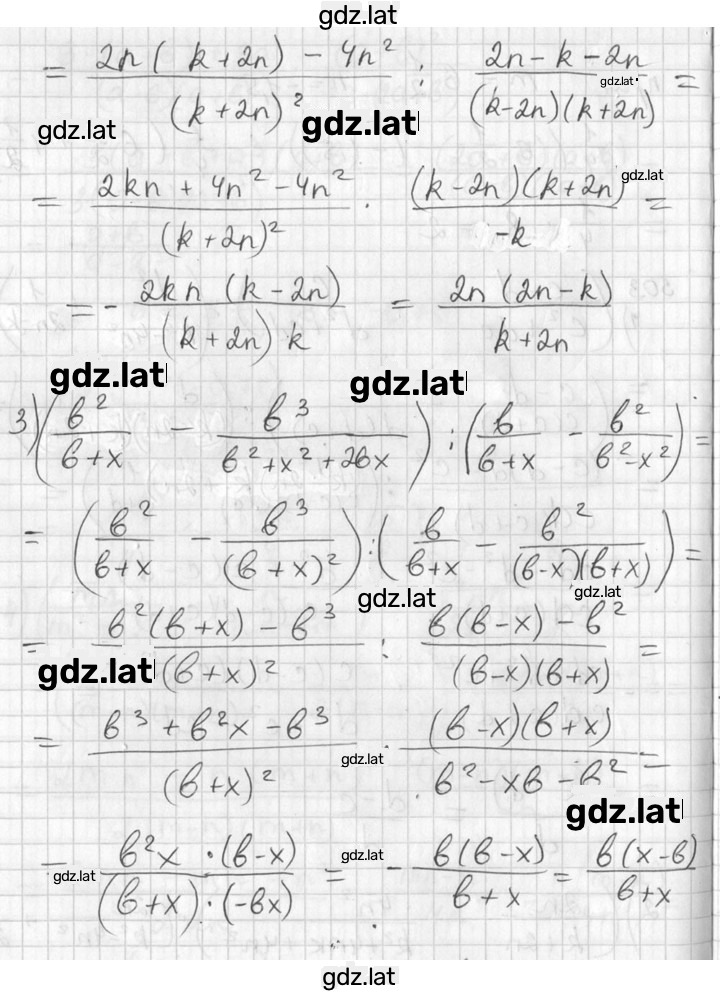 gdz.lat
= (2n(k+2n) - 4n²)/(k+2n)² : (2n-k-2n)/((k-2n)(k+2n)) =
gdz.lat
gdz.lat gdz.lat
= (2kn + 4n² - 4n²)/(k+2n)² · ((k-2n)(k+2n))/(-k) =
gdz.lat
= - (2kn (k-2n))/((k+2n) k) = (2n (2n-k))/(k+2n)
gdz.lat gdz.lat
3) (в²/(в+x) - в³/(в²+x²+2вx)) : (в/(в+x) - в²/(в²-x²)) =
= (в²/(в+x) - в³/(в+x)²) : (в/(в+x) - в²/((в-x)(в+x))) =
gdz.lat gdz.lat
= (в²(в+x) - в³)/(в+x)² : (в(в-x) - в²)/((в-x)(в+x)) =
gdz.lat
= (в³ + в²x - в³)/(в+x)² · ((в-x)(в+x))/(в²-xв-в²) =
gdz.lat
gdz.lat
= (в²x · (в-x))/((в+x) · (-вx)) = - (в(в-x))/(в+x) = (в(x-в))/(в+x)
gdz.lat gdz.lat
gdz.lat